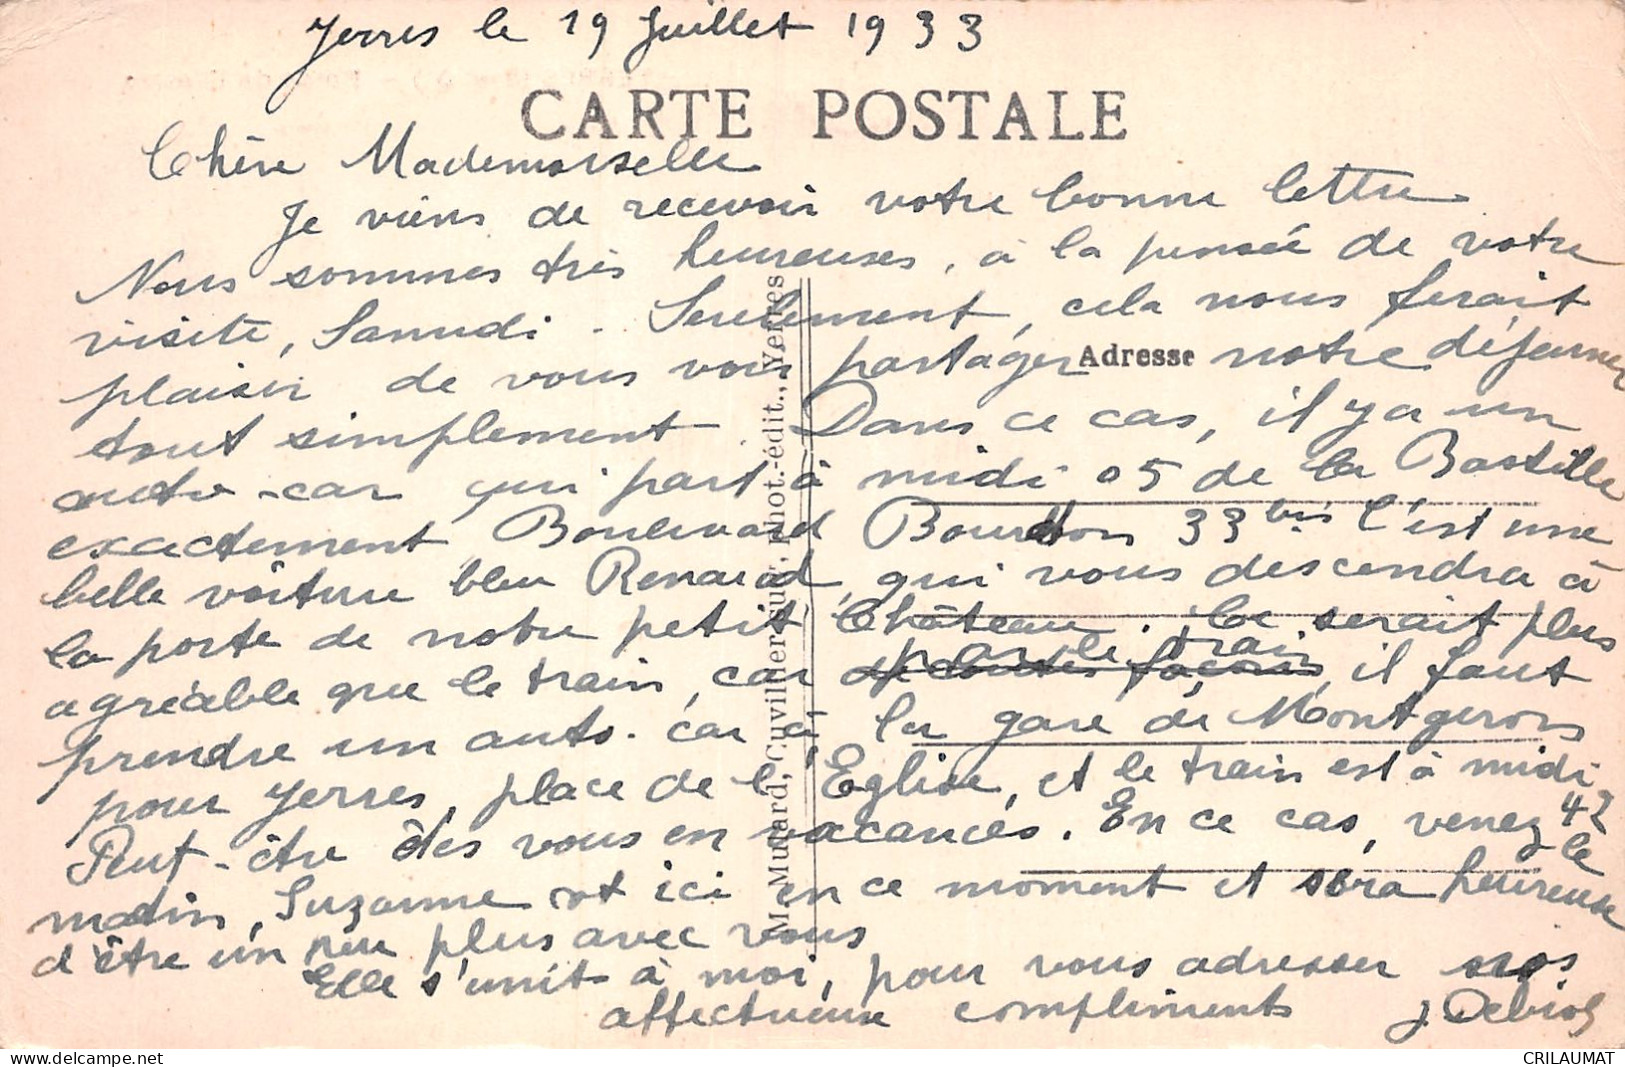 Yerres le 19 Juillet 1933
CARTE POSTALE
Chère Mademoiselle
Je viens de recevoir votre bonne lettre.
Nous sommes très heureuses, à la pensée de votre
visite, Samedi. Seulement, cela nous ferait
plaisir de vous voir partager notre déjeuner
Adresse
tout simplement. Dans ce cas, il y a un
auto-car qui part à midi 05 de la Bastille
exactement Boulevard Bourdon 33 bis C'est une
belle voiture bleu Renard, qui vous descendra à
la porte de notre petit Château. Ce serait plus
par le train
agréable que le train, car de toutes façons, il faut
prendre un auto. car à la gare de Montgerons
pour Yerres, place de l'Eglise, et le train est à midi
42
Peut-être êtes vous en vacances. En ce cas, venez le
matin, Suzanne est ici en ce moment et sera heureuse
d'être un peu plus avec vous
Elle s'unit à moi, pour vous adresser nos
affectueux compliments J Debiol
M. Mulard, Cuvillier suc., phot.-édit., Yerres
CRILAUMAT